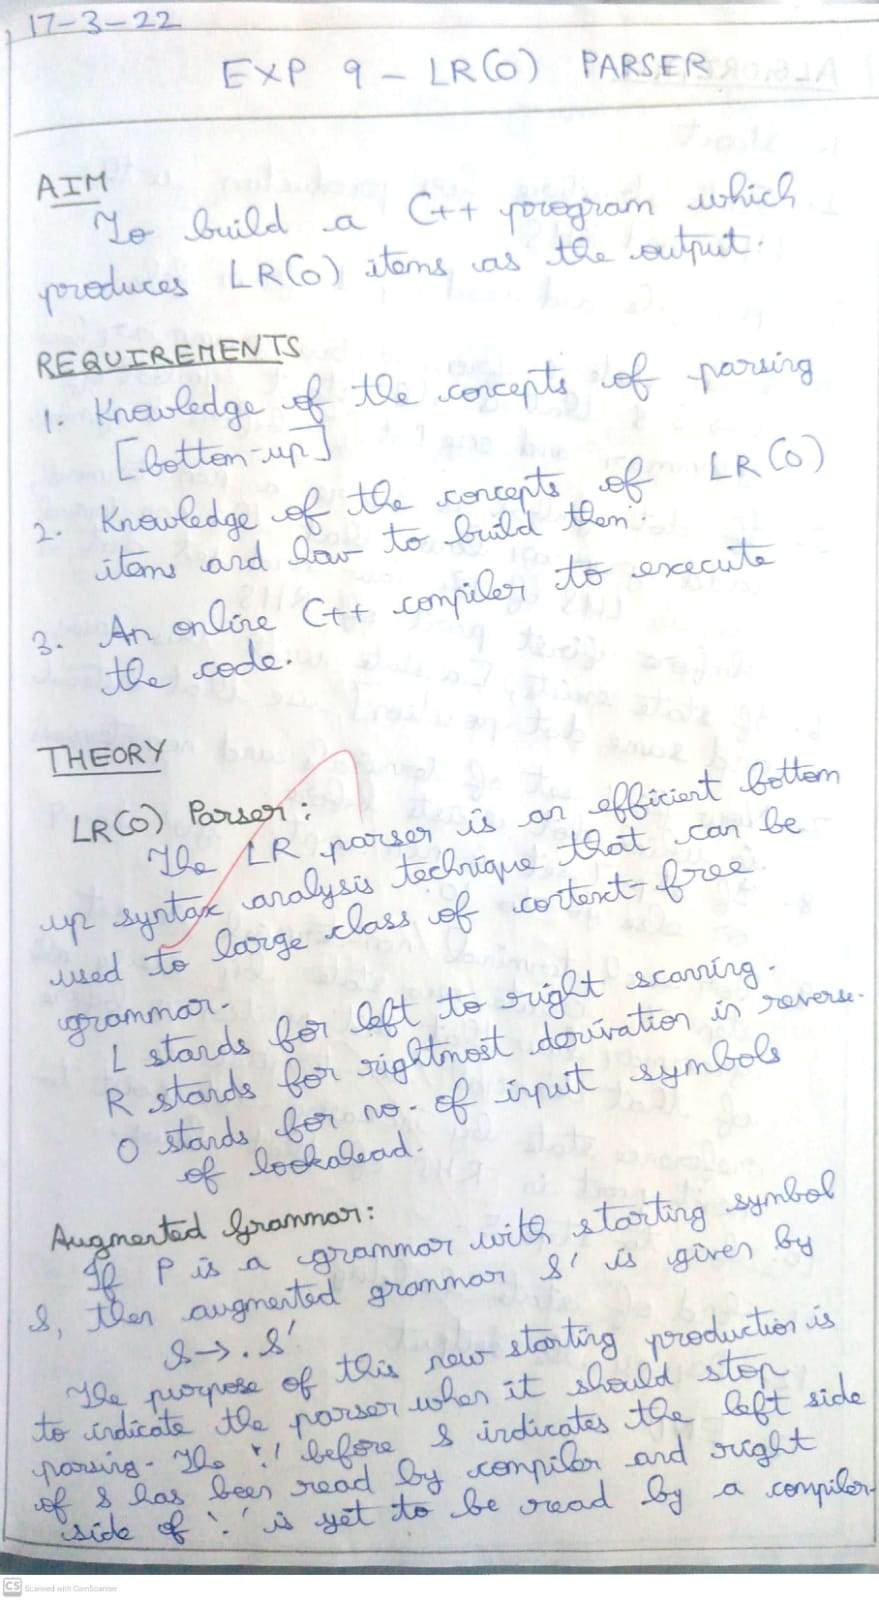 17-3-22
EXP 9 - LR(0) PARSER
AIM
To build a C++ program which
produces LR(0) items as the output.
REQUIREMENTS
1. Knowledge of the concepts of parsing
[bottom-up]
2. Knowledge of the concepts of LR(0)
items and how to build them.
3. An online C++ compiler to execute
the code.
THEORY
LR(0) Parser:
The LR parser is an efficient bottom
up syntax analysis technique that can be
used to large class of context-free
grammar.
L stands for left to right scanning.
R stands for rightmost derivation in reverse.
0 stands for no. of input symbols
of lookahead.
Augmented Grammar:
If P is a grammar with starting symbol
S, then augmented grammar S' is given by
S → . S'
The purpose of this new starting production is
to indicate the parser when it should stop
parsing. The '.' before S indicates the left side
of S has been read by compiler and right
side of '.' is yet to be read by a compiler.
CS Scanned with CamScanner